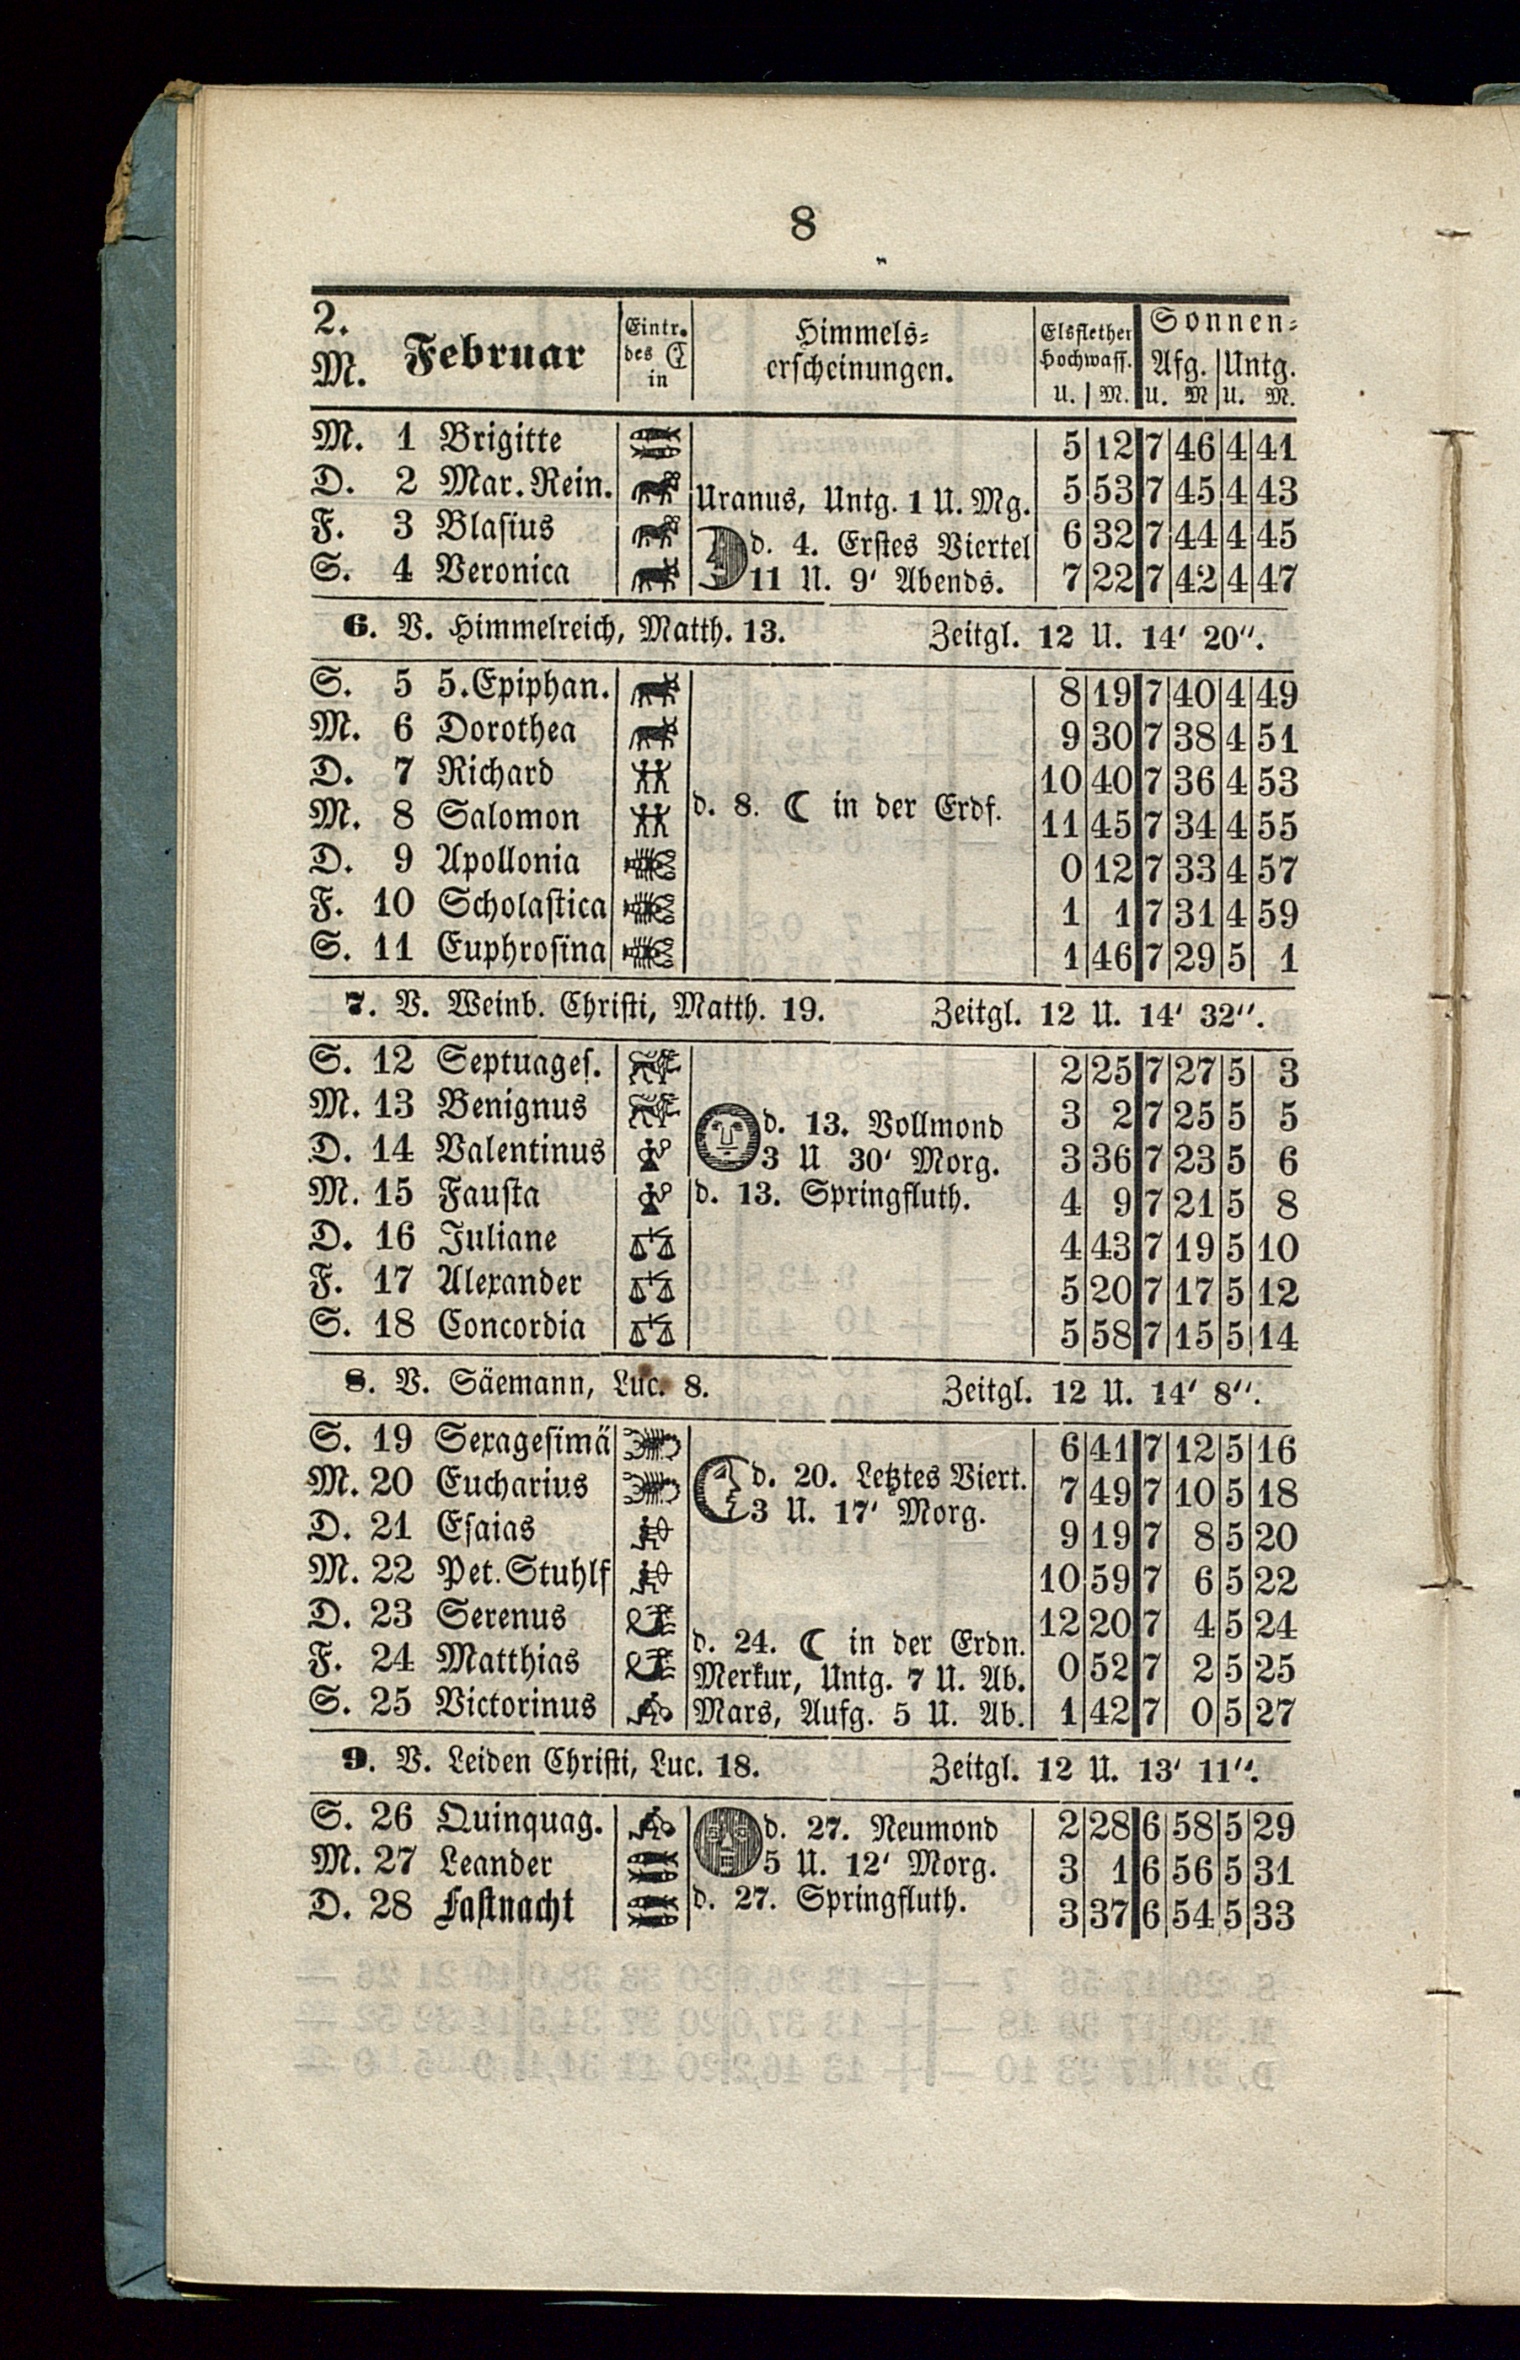 8
2. M. Februar Eintr. des ☾ in Himmels=erscheinungen. Elsflether Hochwass. U. M. Sonnen= Afg. U. M Untg. U. M.
M. 1 Brigitte 5 12 7 46 4 41
D. 2 Mar. Rein. Uranus, Untg. 1 U. Mg. 5 53 7 45 4 43
F. 3 Blasius d. 4. Erstes Viertel 6 32 7 44 4 45
S. 4 Veronica 11 U. 9' Abends. 7 22 7 42 4 47
6. V. Himmelreich, Matth. 13. Zeitgl. 12 U. 14' 20''.
S. 5 5. Epiphan. 8 19 7 40 4 49
M. 6 Dorothea 9 30 7 38 4 51
D. 7 Richard 10 40 7 36 4 53
M. 8 Salomon d. 8. ☾ in der Erdf. 11 45 7 34 4 55
D. 9 Apollonia 0 12 7 33 4 57
F. 10 Scholastica 1 1 7 31 4 59
S. 11 Euphrosina 1 46 7 29 5 1
7. V. Weinb. Christi, Matth. 19. Zeitgl. 12 U. 14' 32''.
S. 12 Septuages. 2 25 7 27 5 3
M. 13 Benignus d. 13. Vollmond 3 2 7 25 5 5
D. 14 Valentinus 3 U 30' Morg. 3 36 7 23 5 6
M. 15 Fausta d. 13. Springfluth. 4 9 7 21 5 8
D. 16 Juliane 4 43 7 19 5 10
F. 17 Alexander 5 20 7 17 5 12
S. 18 Concordia 5 58 7 15 5 14
8. V. Säemann, Luc. 8. Zeitgl. 12 U. 14' 8''.
S. 19 Sexagesimä 6 41 7 12 5 16
M. 20 Eucharius d. 20. Letztes Viert. 7 49 7 10 5 18
D. 21 Esaias 3 U. 17' Morg. 9 19 7 8 5 20
M. 22 Pet. Stuhlf 10 59 7 6 5 22
D. 23 Serenus d. 24. ☾ in der Erdn. 12 20 7 4 5 24
F. 24 Matthias Merkur, Untg. 7 U. Ab. 0 52 7 2 5 25
S. 25 Victorinus Mars, Aufg. 5 U. Ab. 1 42 7 0 5 27
9. V. Leiden Christi, Luc. 18. Zeitgl. 12 U. 13' 11''.
S. 26 Quinquag. d. 27. Neumond 2 28 6 58 5 29
M. 27 Leander 5 U. 12' Morg. 3 1 6 56 5 31
D. 28 Fastnacht d. 27. Springfluth. 3 37 6 54 5 33